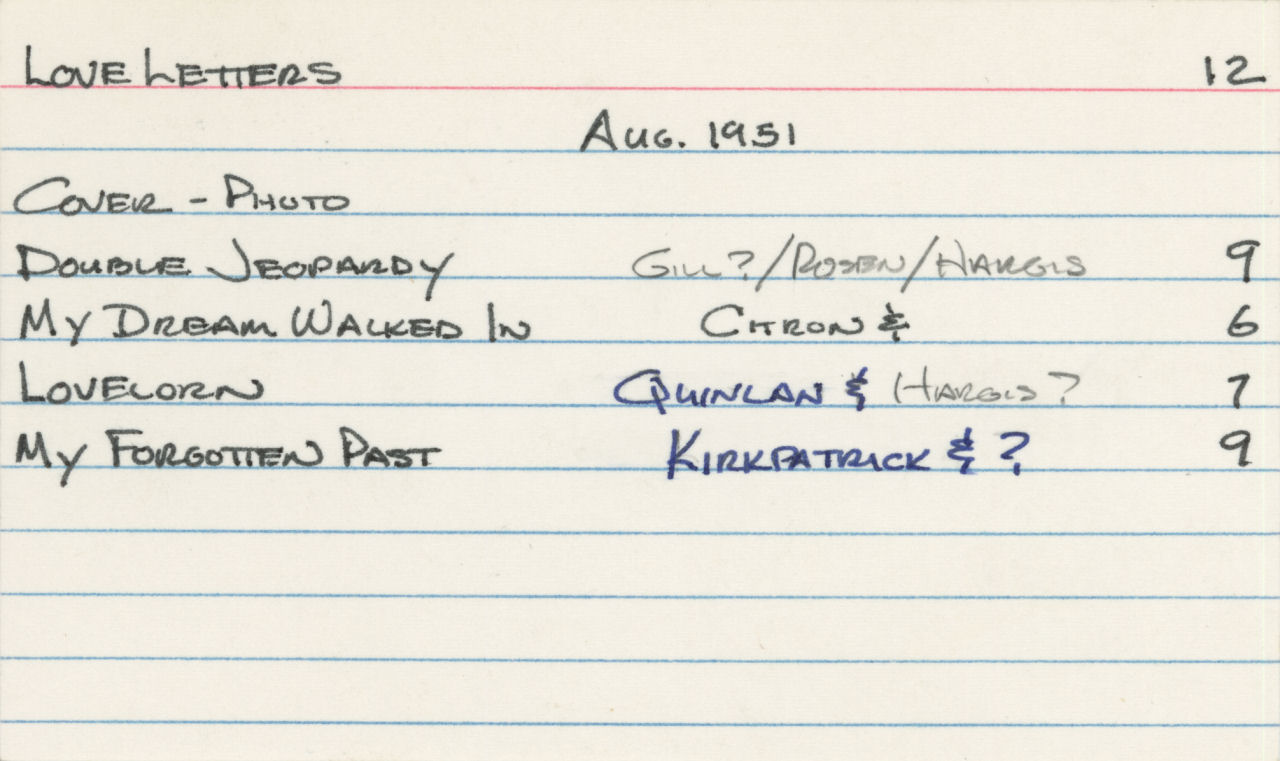 LOVE LETTERS 12
AUG. 1951
COVER - PHOTO
DOUBLE JEOPARDY GILL?/ROSEN/HARGIS 9
MY DREAM WALKED IN CITRON & 6
LOVELORN QUINLAN & HARGIS? 7
MY FORGOTTEN PAST KIRKPATRICK & ? 9